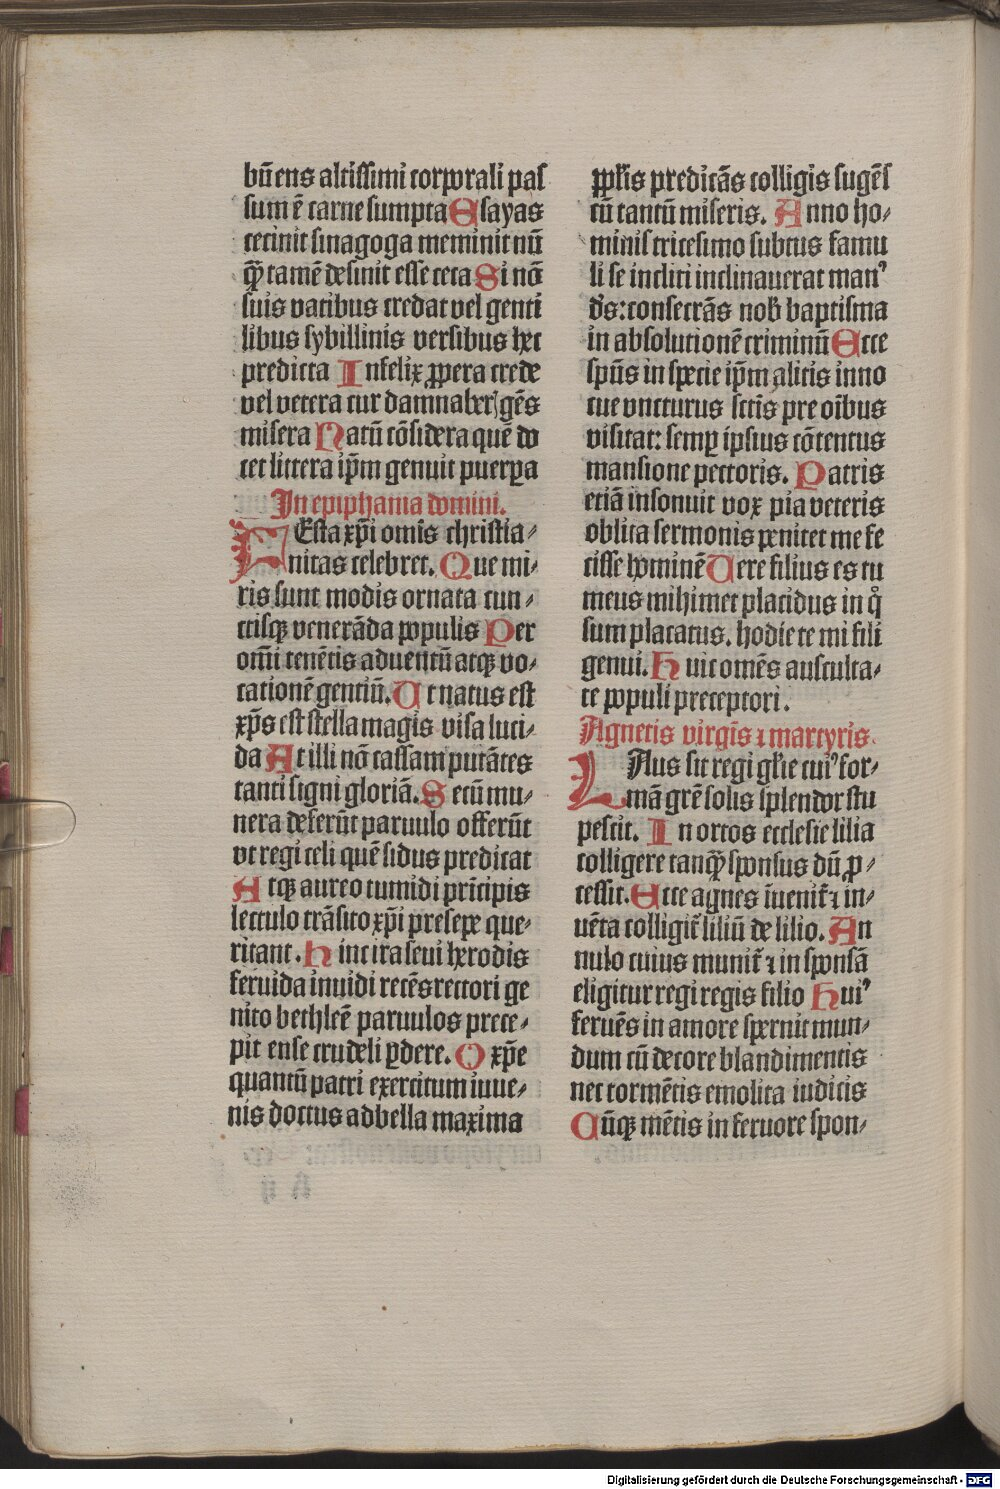 bū ens altissimi corporali pas
sum ē carne sumpta Esayas
cecinit sinagoga meminit nū
q̄ꝫ tamē desinit esse ceca Si nō
suis vatibus credat vel genti
libus sybillinis versibus hec
predicta Infelix ꝓpera crede
vel vetera cur damnaberꝭ gēs
misera Natū cōsidera quē do
cet littera ip̄m genuit puerpa
In epiphania domini.
FEsta xp̄i om̄is christia⸗
nitas celebret. Que mi⸗
ris sunt modis ornata cun⸗
ctisqꝫ venerāda populis Per
om̄i tenētis aduentū atqꝫ vo⸗
cationē gentiū. Ut natus est
xp̄s est stella magis visa luci⸗
da At illi nō cassam putātes
tanti signi gloriā. Secū mu⸗
nera deferūt paruulo offerūt
vt regi celi quē sidus predicat
Atqꝫ aureo tumidi prīcipis
lectulo trāsito xp̄i presepe que⸗
ritant. Hinc ira seui herodis
feruida inuidi recēs rectori ge
nito bethleē paruulos prece⸗
pit ense crudeli ꝑdere. O xp̄e
quantū patri exercitum iuue⸗
nis doctus ad bella maxima
ppl̄is predicās colligis sugēs
cū tantū miseris. Anno ho⸗
minis tricesimo subtus famu
li se incliti inclinauerat manꝰ
d̄s: consecrās nob̄ baptisma
in absolutionē criminū Ecce
sp̄us in specie ip̄m alitis inno
cue vncturus sctīs pre oībus
visitat: semꝑ ipsius cōtentus
mansione pectoris. Patris
etiā insonuit vox pia veteris
oblita sermonis penitet me fe
cisse hominē Uere filius es tu
meus mihimet placidus in q̊
sum placatus. hodie te mi fili
genui. Huic omēs ausculta⸗
te populi preceptori.
Agnetis virgīs ⁊ martyris.
LAus sit regi gl̄ie cuiꝰ for⸗
mā grē solis splendor stu
pescit. In ortos ecclesie lilia
colligere tanq̄ꝫ sponsus dū ꝓ⸗
cessit. Ecce agnes īuenit̄ ⁊ in⸗
uēta colligit̄ liliū de lilio. An
nulo cuius munit̄ ⁊ in sponsā
eligitur regi regis filio Huiꝰ
feruēs in amore spernit mun⸗
dum cū decore blandimentis
nec tormētis emolita iudicis
Cūqꝫ mētis in feruore spon⸗
Digitalisierung gefördert durch die Deutsche Forschungsgemeinschaft - DFG